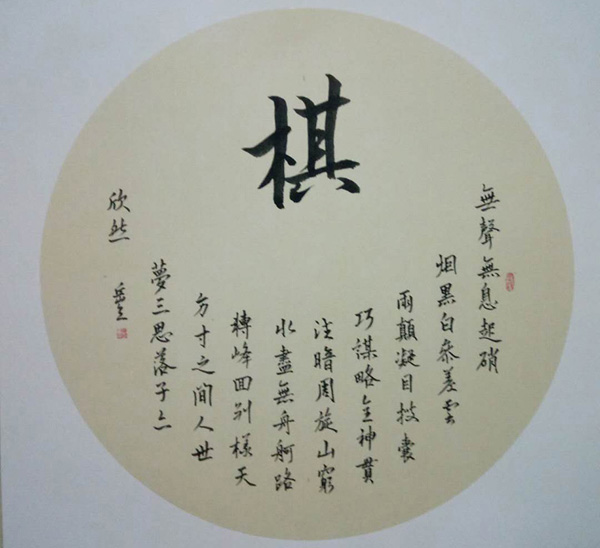 棋
無聲無息起硝
烟黑白參差雲
雨顛凝目技囊
巧謀略全神貫
注暗周旋山窮
水盡無舟舸路
轉峰回别樣天
方寸之間人世
夢三思落子亦
欣然